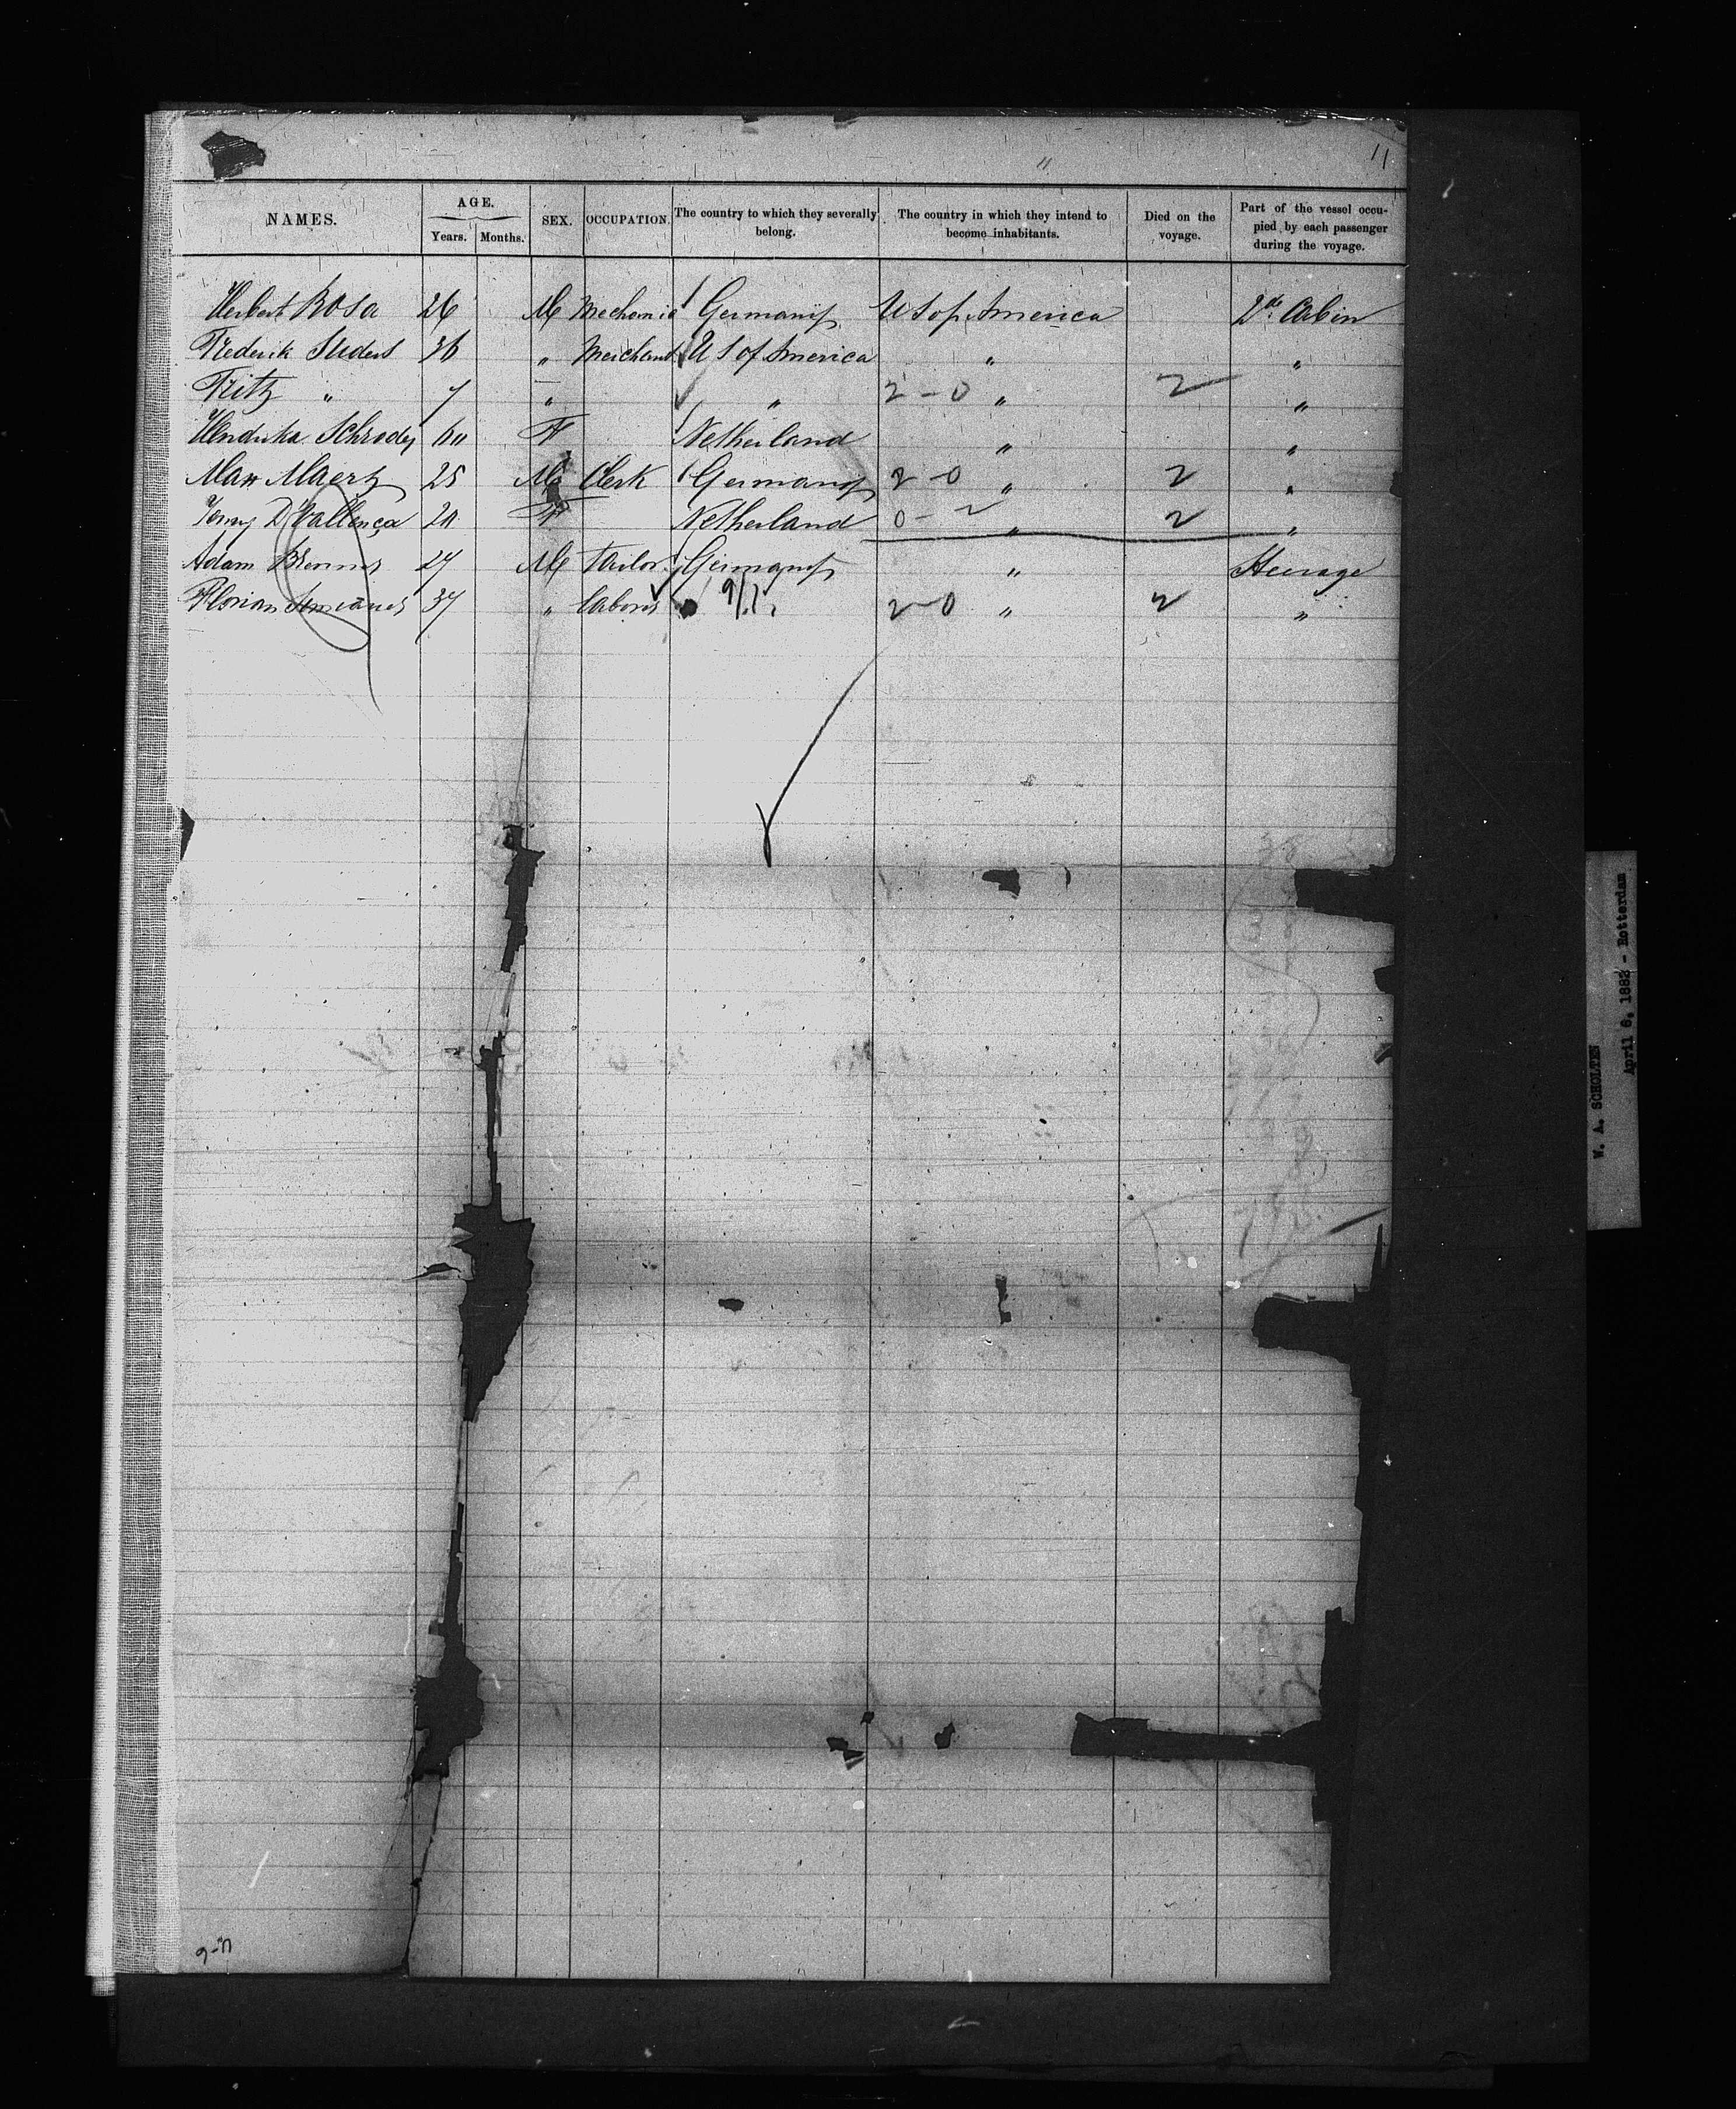 " 11
NAMES. AGE. SEX. OCCUPATION. The country to which they severally belong. The country in which they intend to become inhabitants. Died on the voyage. Part of the vessel occupied by each passenger during the voyage.
Years. Months.
Herbert Rosa 26 M Mechanic Germany U S of America 2de Cabin
Frederik 36 " Merchant U S of America " "
Fritz " 7 " " 2-0 " 2 "
Hendrika Schroder 60 F Netherland " "
Max Maertz 25 M Clerk Germany 2-0 " 2 "
20 F Netherland 0-2 " 2 "
Adam 27 M tailor Germany " Steerage
Florian 37 " laborer 2-0 " 2 "
W. A. SCHOLTEN
April 6, 1882 - Rotterdam